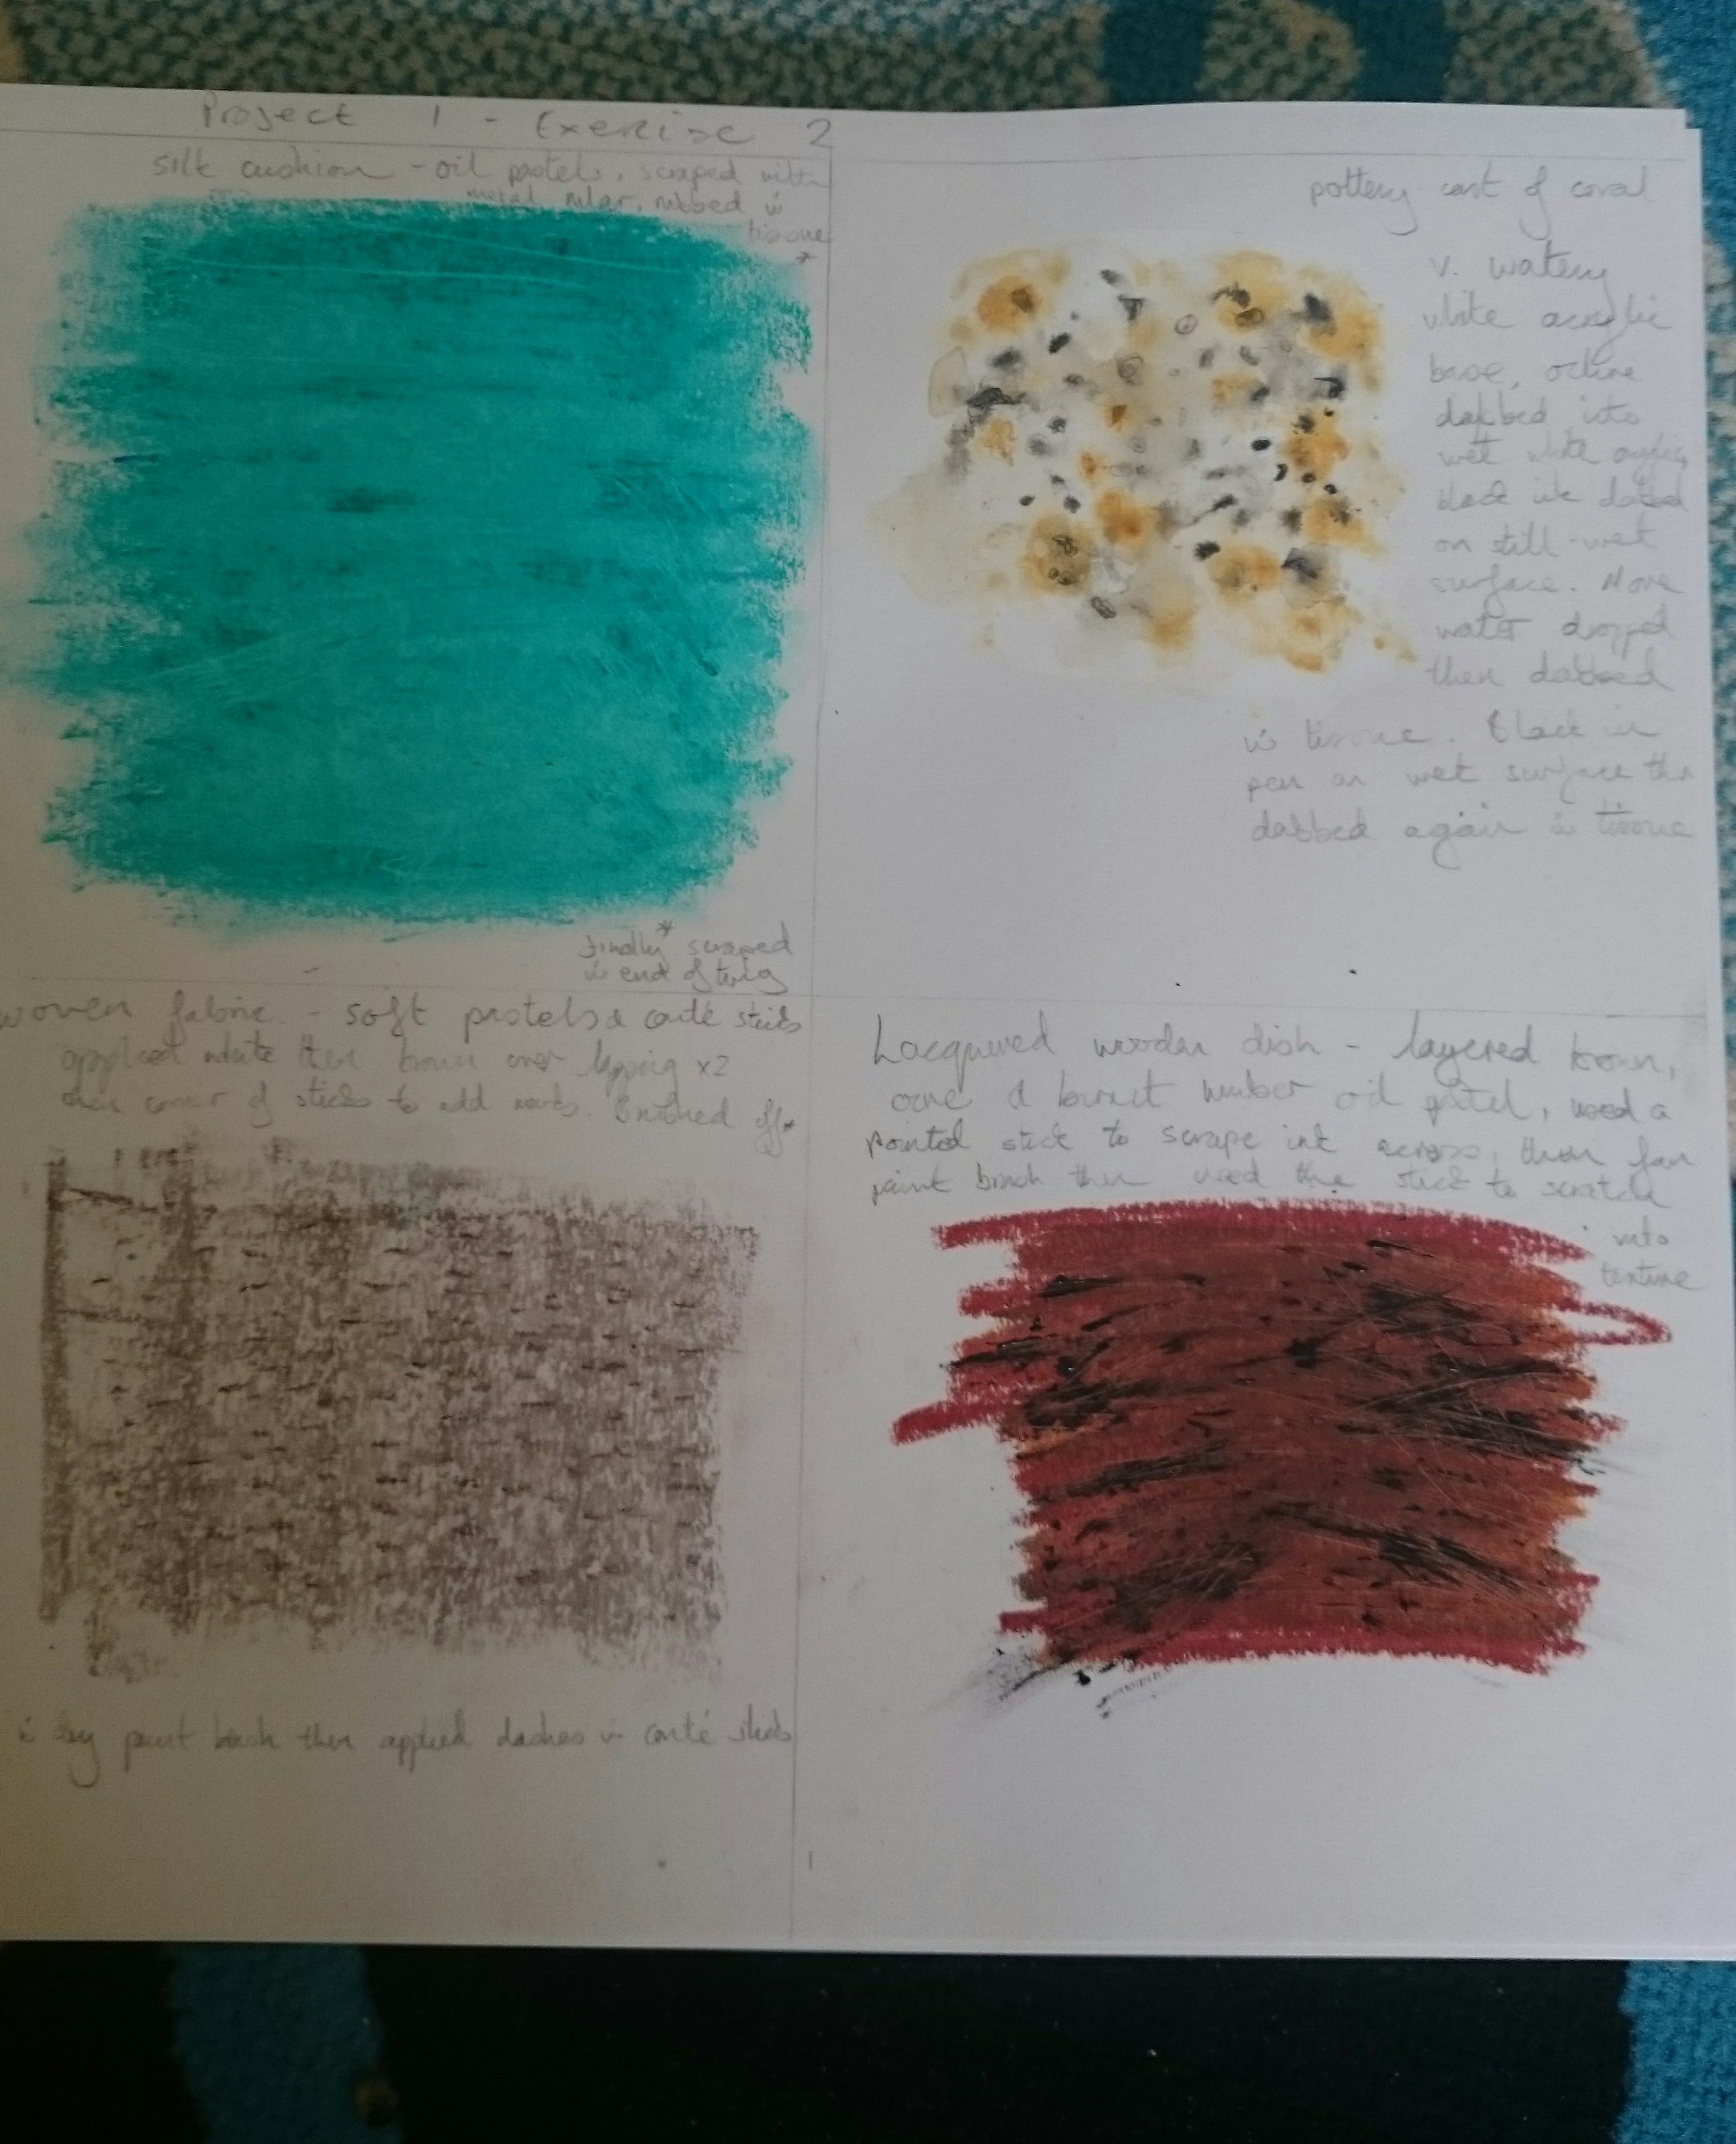 Project 1 - Exercise 2
silk cushion - oil pastels, scraped with
metal ruler, rubbed w
tissue
*
finally* scraped
w end of twig
pottery cast of coral
v. watery
white acrylic
base, ochre
dabbed into
wet white acrylic
black ink dabbed
on still-wet
surface. More
water dropped
then dabbed
w tissue. Black in
pen on wet surface then
dabbed again w tissue
woven fabric - soft pastels & conté sticks
applied white then brown over lapping x2
then corner of sticks to add marks. Brushed off*
w dry paint brush then applied dashes w conté sticks
Lacquered wooden dish - layered brown,
& burnt umber oil pastel, used a
pointed stick to scrape ink across, then fan
paint brush then used the stick to scratch
into
texture